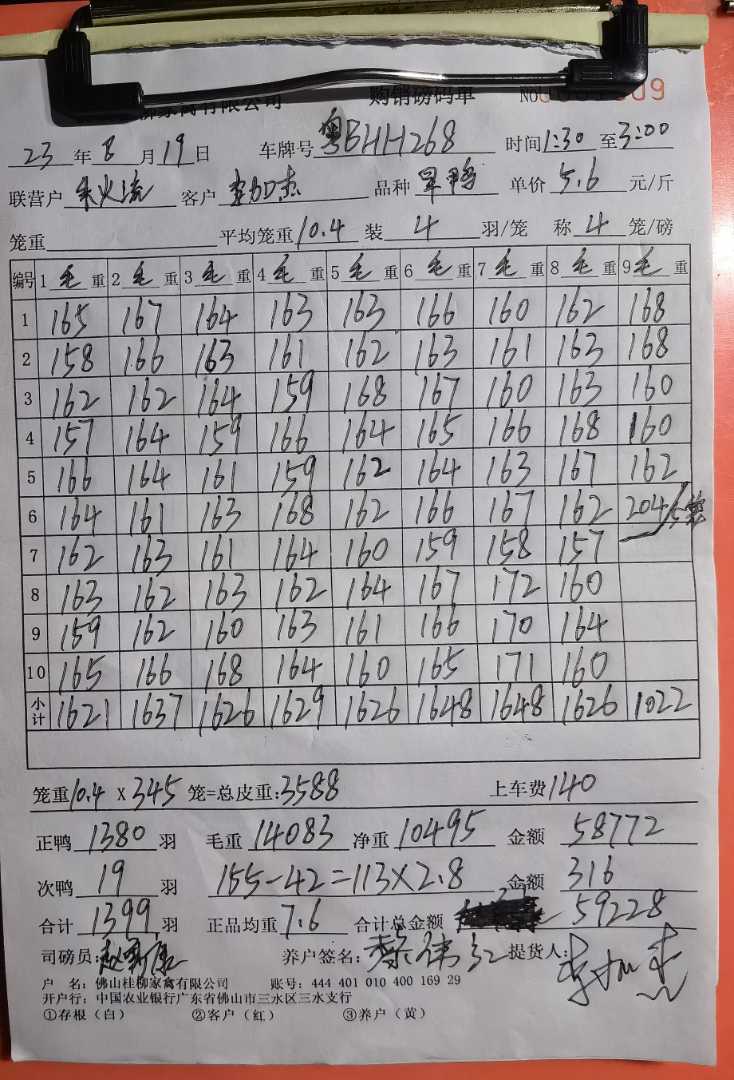 家禽有限公司 购销磅码单 NO 09
23 年 8 月 19 日 车牌号 粤BHH268 时间 1:30 至 3:00
联营户 客户 品种 单价 5.6 元/斤
笼重 平均笼重 10.4 装 4 羽/笼 称 4 笼/磅
编号 1 毛 重 2 毛 重 3 毛 重 4 毛 重 5 毛 重 6 毛 重 7 毛 重 8 毛 重 9 毛 重
1 165 167 164 163 163 166 160 162 168
2 158 166 163 161 162 163 161 163 168
3 162 162 164 159 168 167 160 163 160
4 157 164 159 166 164 165 166 168 160
5 166 164 161 159 162 164 163 167 162
6 164 161 163 168 162 166 167 162 204/5笼
7 162 163 161 164 160 159 158 157
8 163 162 163 162 164 167 172 160
9 159 162 160 163 161 166 170 164
10 165 166 168 164 160 165 171 160
小计 1621 1637 1626 1629 1626 1648 1648 1626 1022
笼重 10.4 X 345 笼=总皮重: 3588 上车费 140
正鸭 1380 羽 毛重 14083 净重 10495 金额 58772
次鸭 19 羽 155-42=113×2.8 金额 316
合计 1399 羽 正品均重 7.6 合计总金额 59228
司磅员: 养户签名: 提货人:
户 名: 佛山桂柳家禽有限公司 账号: 444 401 010 400 169 29
开户行: 中国农业银行广东省佛山市三水区三水支行
①存根（白） ②客户（红） ③养户（黄）